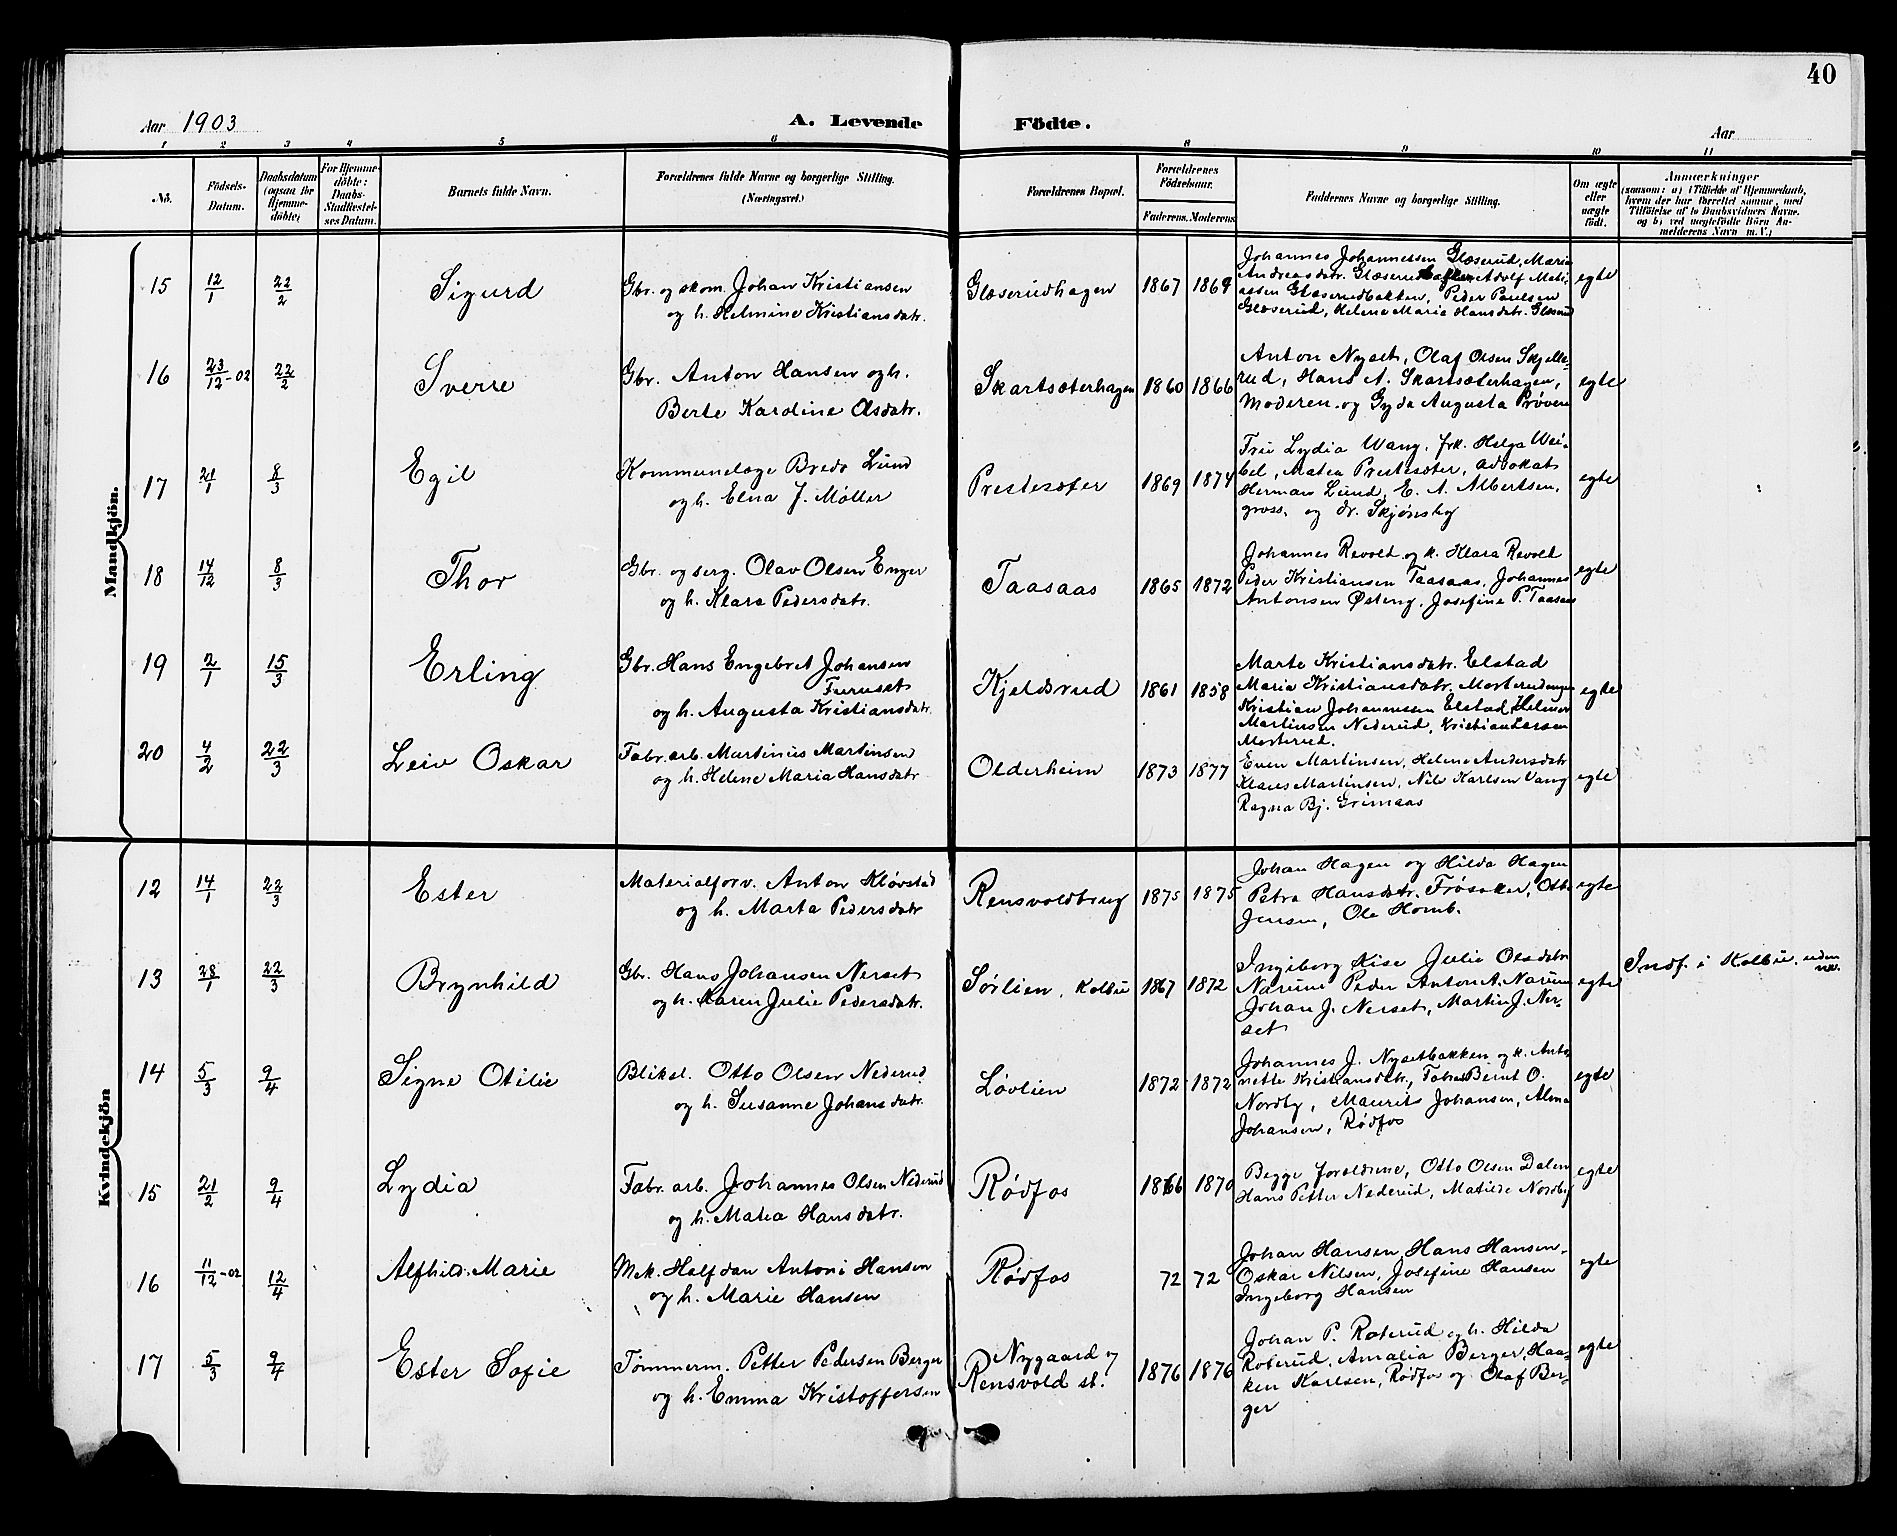 40
Aar 1903
A. Levende Födte.
Aar
1 2 3 4 5 6 8 9 10 11
No.
Födsels-Datum.
Daabsdatum (ogsaa for Hjemme-döbte;
For Hjemme-döbte: Daabs-Stadfæstel-ses Datum.
Barnets fulde Navn.
Forældrenes fulde Navne og borgerlige Stilling.
(Næringsvei.)
Forældrenes Bopæl.
Forældrenes Födselsaar.
Faderens. Moderens
Faddernes Navne og borgerlige Stilling.
Om ægte eller uægte födt.
Anmærkninger
(saasom: a) i Tilfælde af Hjemmedaab,
hvem der har forrettet samme, med
Tilföielse af to Daabsvidners Navne.
og b) ved uægtefödte Börn An-
melderens Navn m. V.)
Mandkjön.
15 12/1 22/2 Sigurd
Gbr. og skom. Johan Kristiansen
og h. Helmine Kristiansdatr.
Glæserudhagen 1867 1869
Johannes Johannessen Glæserud, Maria
Andreasdatr. Adolf Mati-
assen Glæserudbakken, Peder Paulsen
Glæserud, Helene Maria Hansdatr. Glæserud
egte
16 23/12-02 22/2 Sverre
Gbr. Anton Hansen og h.
Berte Karoline Olsdatr.
Skartsæterhagen 1860 1866
Anton Nyset, Olaf Olsen Skjelle-
rud, Hans A. Skartsæterhagen,
Moderen og Gyda Augusta Prøven
egte
17 21/1 8/3 Egil
Kommunelæge Brede Lund
og h. Elna J. Møller
Prestesæter 1869 1874
Frue Lydia Wang, frk. Helga Wei-
bel, Matea Prestesæter, advokat
Herman Lund, E. A. Albertsen,
gross. og dr. Skjønsby
egte
18 14/12 8/3 Thor
Gbr. og serg. Olav Olsen Enger
og h. Klara Pedersdatr.
Taasaas 1865 1872
Johannes Revold og k. Klara Revold
Peder Kristiansen Taasaas, Johannes
Antonsen Østeng, Josefine P. Taasaas
egte
19 2/1 15/3 Erling
Gbr. Hans Engebret Johansen
Furuset
og h. Augusta Kristiansdatr.
Kjeldsrud 1861 1858
Marte Kristiansdatr. Elstad
Maria Kristiansdatr. Morterudengen
Kristian Johannessen Elstad, Helmer
Martinsen Nederud, Kristian Larsen
Morterud.
egte
20 4/2 22/3 Leiv Oskar
Fabr. arb. Martinus Martinsen
og h. Helene Maria Hansdatr
Olderheim 1873 1877
Even Martinsen, Helene Andersdatr
Klaus Martinsen, Nils Karlsen Vang
Ragna Bj. Grimaas
egte
Kvindekjön
12 14/1 22/3 Ester
Materialforv. Anton Kløvstad
og h. Marta Pedersdatr
Rensvoldbrug 1875 1875
Johan Hagen og Hilda Hagen
Petra Hansdatr. Frøsaker, Otto
Jensen, Ole Homb.
egte
13 28/1 22/3 Brynhild
Gbr. Hans Johansen Nerset
og h. Karen Julie Pedersdatr.
Sørlien, Kolbu 1867 1872
Ingeborg Kise Julie Olsdatr
Narum Peder Anton A. Narum
Johan J. Nerset, Martin J. Ner-
set
egte
Indf. i Kolbu. uden
nr.
14 5/3 9/4 Signe Otilie
Bliksl. Otto Olsen Nederud
og h. Susanne Johansdatr.
Løvlien 1872 1872
Johannes J. Nysetbakken og k. Anto-
nette Kristiansdatr, Bernt O.
Nordby, Maurits Johansen, Alma
Johansen, Rødfos
egte
15 21/2 9/4 Lydia
Fabr. arb. Johannes Olsen Nederud
og h. Matea Hansdatr.
Rødfos 1866 1870
Begge forældrene, Otto Olsen Dalen
Hans Petter Nederud, Matilde Nordby
egte
16 11/12-02 12/4 Alfhild Marie
Mek. Halfdan Antoni Hansen
og h. Marie Hansen
Rødfos 72 72
Johan Hansen, Hans Hansen,
Oskar Nilsen, Josefine Hansen
Ingeborg Hansen
egte
17 5/3 9/4 Ester Sofie
Tømmerm. Petter Pedersen Berger
og h. Emma Kristoffersen
Nygaard og
Rensvold st. 1876 1876
Johan P. Roterud og h. Hilda
Roterud, Amalia Berger, Haa-
ken Karlsen, Rødfos og Olaf Ber-
ger
egte